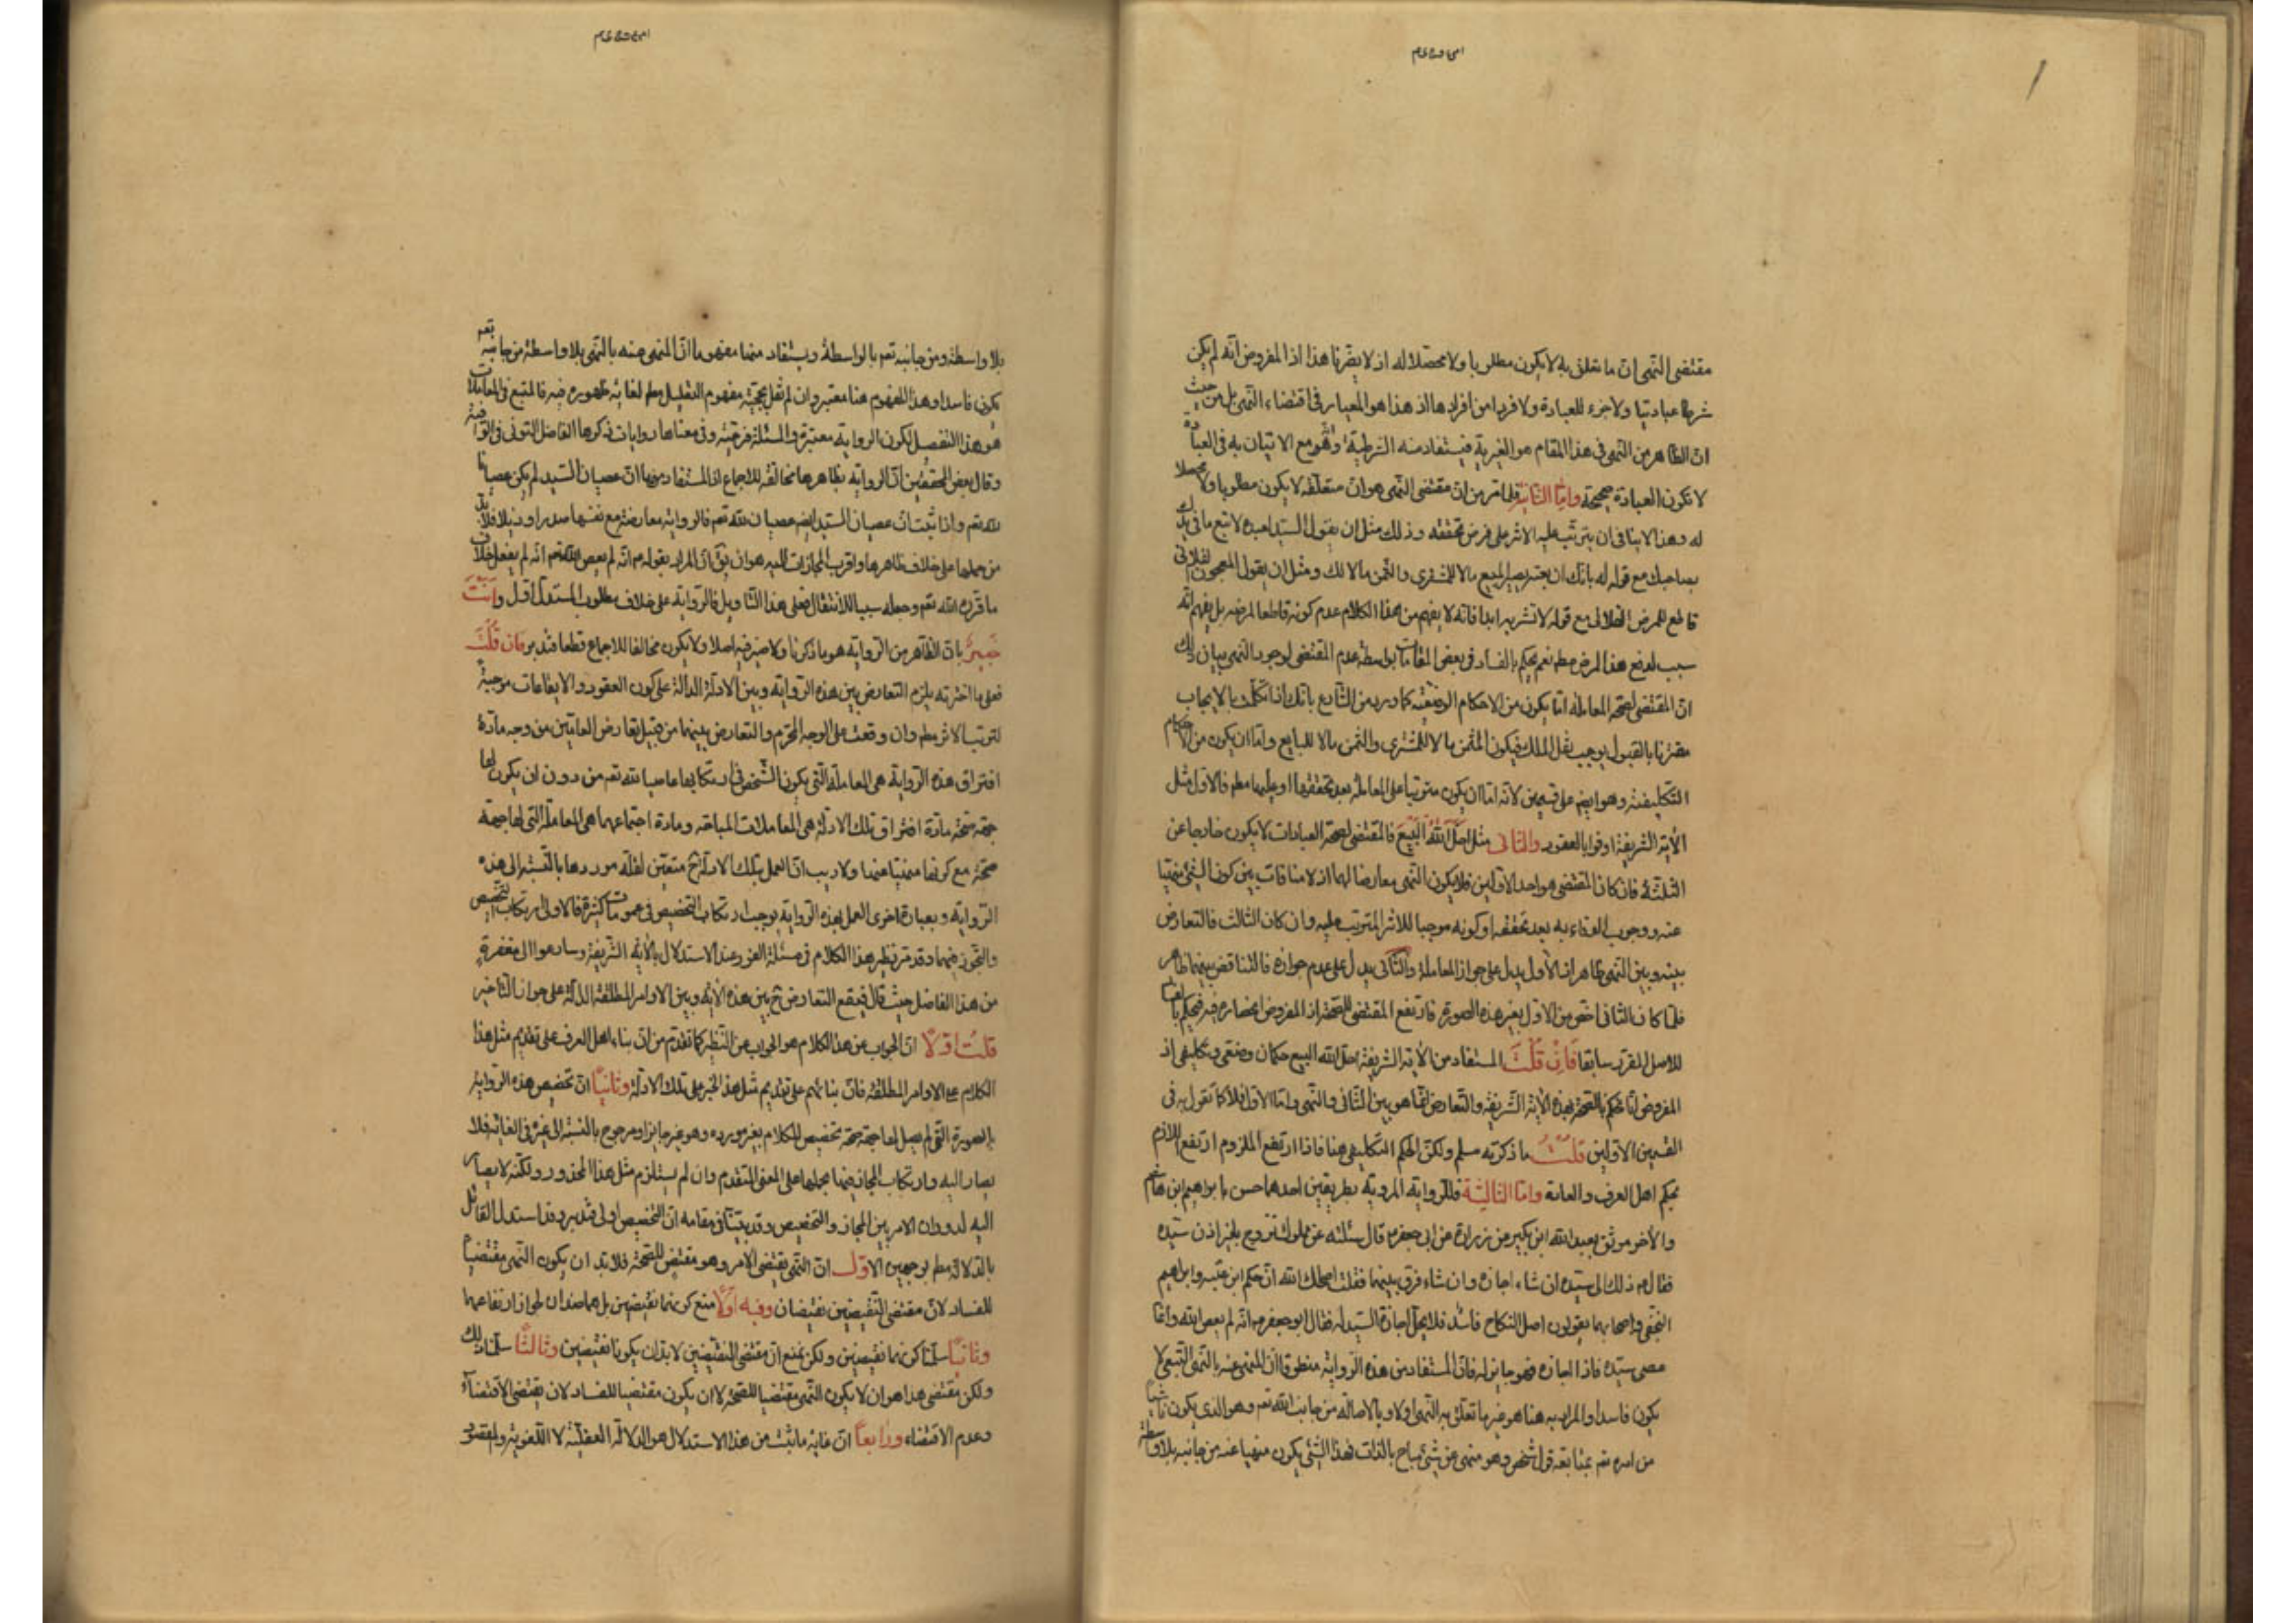 مقتضى النهى ان ما تعلق به لا يكون مطلوبا ولا محصلا له اذ لا يضرنا هذا اذا المفروض انه لم يكن
شرطا عباديا ولا جزء للعبادة ولا فردا من افرادها اذ هذا هو المعيار فى اقتضاء النهى بل من حيث
ان الظاهر من النهى فى هذا المقام هو الغيرية فيستفاد منه الشرطية وهو مع الاتيان به فى العبادة
لا تكون العبادة صحيحة واما الثانية فلما مر من ان مقتضى النهى هو ان متعلقه لا يكون مطلوبا ولا محصلا
له وهذا لا ينافى ان يترتب عليه الاثر على فرض تحققه وذلك مثل ان يقول السيد لعبده لا تبع ما فى يدك
بصاحبك مع قوله له بانك ان بعته يصير المبيع مالا للمشترى والثمن مالا لك ومثل ان يقول المعجون الفلانى
قاطع للمرض الفلانى مع قوله لا تشربه ابدا فانه لا يفهم من هذا الكلام عدم كونه قاطعا لمرضه بل يفهم انه
سبب لدفع هذا المرض مطم نعم يحكم بالفساد فى بعض المقامات بواسطة عدم المقتضى لوجود النهى بيان ذلك
ان المقتضى لصحة المعاملة اما يكون من الاحكام الوضعية كما ورد من الشارع بانك اذا تكلمت بالايجاب
مقترنا بالقبول يوجب نقل الملك فيكون المثمن مالا للمشترى والثمن مالا للبايع واما ان يكون من الاحكام
التكليفية وهو ايضم على قسمين لانه اما ان يكون مترتبا على المعاملة بعد تحققها او عليها مطم فالاول مثل
الآية الشريفة اوفوا بالعقود والثانى مثل احل الله البيع فالمقتضى لصحة العبادات لا يكون خارجا عن
الثلثة فان كان المقتضى هو احد الاولين فلا يكون النهى معارضا لهما اذ لا منافات بين كون الشئ منهيا
عنه ووجوب الوفاء به بعد تحققه او كونه موجبا للاثر المترتب عليه وان كان الثالث فالتعارض
بينه وبين النهى ظاهر اذ الاول يدل على جواز المعاملة والثانى يدل على عدم جوازه فالتناقض بينهما ظاهر
فلما كان الثانى اخص من الاول بغير هذه الصورة فارتفع المقتضى للصحة اذ المفروض انحصاره فيه فيحكم بالفساد
للاصل المقرر سابقا فان قلت المستفاد من الآية الشريفة احل الله البيع حكمان وضعى وتكليفى اذ
المفروض انا نحكم بالصحة بهذه الآية الشريفة والتعارض انما هو بين الثانى والنهى واما الاول فلا كما تقول به فى
القسمين الاولين قلت ما ذكرته مسلم ولكن الحكم التكليفى هنا فاذا ارتفع الملزوم ارتفع اللازم
بحكم اهل العرف والعادة واما الثالثة فللرواية المروية بطريقين احدهما حسن بابراهيم ابن هاشم
والآخر موثق بعبد الله ابن بكير من زرارة عن ابى جعفر م قال سئلته عن مملوك تزوج بغير اذن سيده
فقال م ذلك الى سيده ان شاء اجازه وان شاء فرق بينهما فقلت اصلحك الله ان حكم ابن عتيبه وابراهيم
النخعى واصحابهما يقولون اصل النكاح فاسد فلا يحل اجازة السيد له فقال ابو جعفر م انه لم يعص الله وانما
عصى سيده فاذا اجازه فهو جايز له فان المستفاد من هذه الرواية منطوقا ان المنهى عنه بالنهى التبعى لا
يكون فاسدا والمراد به هنا هو غير ما تعلق به النهى اولا وبالاصالة من جانب الله تعم وهو الذى يكون ناشيا
من امره تعم بمتابعة قول شخص وهو منهى عن شئ مباح بالذات فهذا الشئ يكون منهيا عنه من جانبه بلا واسطة
بلا واسطة ومن جانبه تعم بالواسطة ويستفاد منها مفهوما ان المنهى عنه بالنهى بلا واسطة من جانبه تعم
يكون فاسدا وهذا المفهوم هنا معتبر وان لم نقل بحجية مفهوم التعليل مطم لغاية ظهوره فيه فالمتبع فى المعاملات
هو هذا التفصيل لكون الرواية معتبرة والمسئلة فرعية وفى معناها روايات ذكرها الفاضل التونى فى الوافية
وقال بعض المحققين ان الرواية بظاهرها مخالفة للاجماع اذ المستفاد منها ان عصيان السيد لم يكن عصيانا
لله تعم واذا ثبت ان عصيان السيد ايضم عصيان لله تعم فالرواية معارضة مع نفسها صدرا وذيلا فلابد
من حملها على خلاف ظاهرها واقرب المجازات اليه هو ان يق ان المراد بقوله م انه لم يعص الله تعم انه لم يفعل خلاف
ما قرره الله تعم وجعله سببا للانتقال فعلى هذا التاويل فالرواية على خلاف مطلوب المستدل اقول وانت
خبير بان الظاهر من الرواية هو ما ذكرنا ولا ضير فيه اصلا ولا يكون مخالفا للاجماع قطعا فتدبر فان قلت
فعلى ما اخترته يلزم التعارض بين هذه الرواية وبين الادلة الدالة على كون العقود والايقاعات موجبة
لترتب الاثر مطم وان وقعت على الوجه المحرم والتعارض بينهما من قبيل تعارض العامين من وجه مادة
افتراق هذه الرواية هى المعاملة التى يكون الشخص فى ارتكابها عاصيا لله تعم من دون ان يكون لها
جهة صحة مادة افتراق تلك الادلة هى المعاملات المباحة ومادة اجتماعهما هى المعاملة التى لها جهة
صحة مع كونها منهيا عنها ولا ريب ان العمل بتلك الادلة ح متعين لقلة موردها بالنسبة الى هذه
الرواية وبعبارة اخرى العمل بهذه الرواية يوجب ارتكاب التخصيص فى عمومات كثيرة فالاولى ارتكاب التخصيص
والتجوز فيها وقد مر نظير هذا الكلام فى مسئلة الفور عند الاستدلال بالآية الشريفة وسارعوا الى مغفرة
من هذا الفاضل حيث قال فيقع التعارض ح بين هذه الآية وبين الاوامر المطلقة الدالة على جواز التاخير
قلت اولا ان الجواب عن هذا الكلام هو الجواب عن النظير كما تقدم من ان بناء اهل العرف على تقديم مثل هذا
الكلام مع الاوامر المطلقة فان بنائهم على تقديم مثل هذا الخبر على تلك الادلة وثانيا ان تخصيص هذه الرواية
بالصورة التى لم يصل لها جهة صحة تخصيص للكلام بغير مورده وهو غير جايز او مرجوح بالنسبة الى غيره فى الغاية فلا
يصار اليه وارتكاب المجاز فيها بحملها على المعنى المتقدم وان لم يستلزم مثل هذا المحذور ولكنه لا يصار
اليه لدوران الامر بين المجاز والتخصيص وقد بينا فى مقامه ان التخصيص اولى فتدبر وقد استدل القائل
بالدلالة مطم بوجهين الاول ان النهى نقيض الامر وهو مقتض للصحة فلابد ان يكون النهى مقتضيا
للفساد لان مقتضى النقيضين نقيضان وفيه اولا منع كونهما نقيضين بل هما ضدان لجواز ارتفاعهما
وثانيا سلمنا كونهما نقيضين ولكن نمنع ان مقتضى النقيضين لابد ان يكونا نقيضين وثالثا سلمنا ذلك
ولكن مقتضى هذا هو ان لا يكون النهى مقتضيا للصحة لا ان يكون مقتضيا للفساد لان نقيض الاقتضاء
وعدم الاقتضاء ورابعا ان غاية ما يثبت من هذا الاستدلال هو الدلالة العقلية لا اللغوية والمقصود